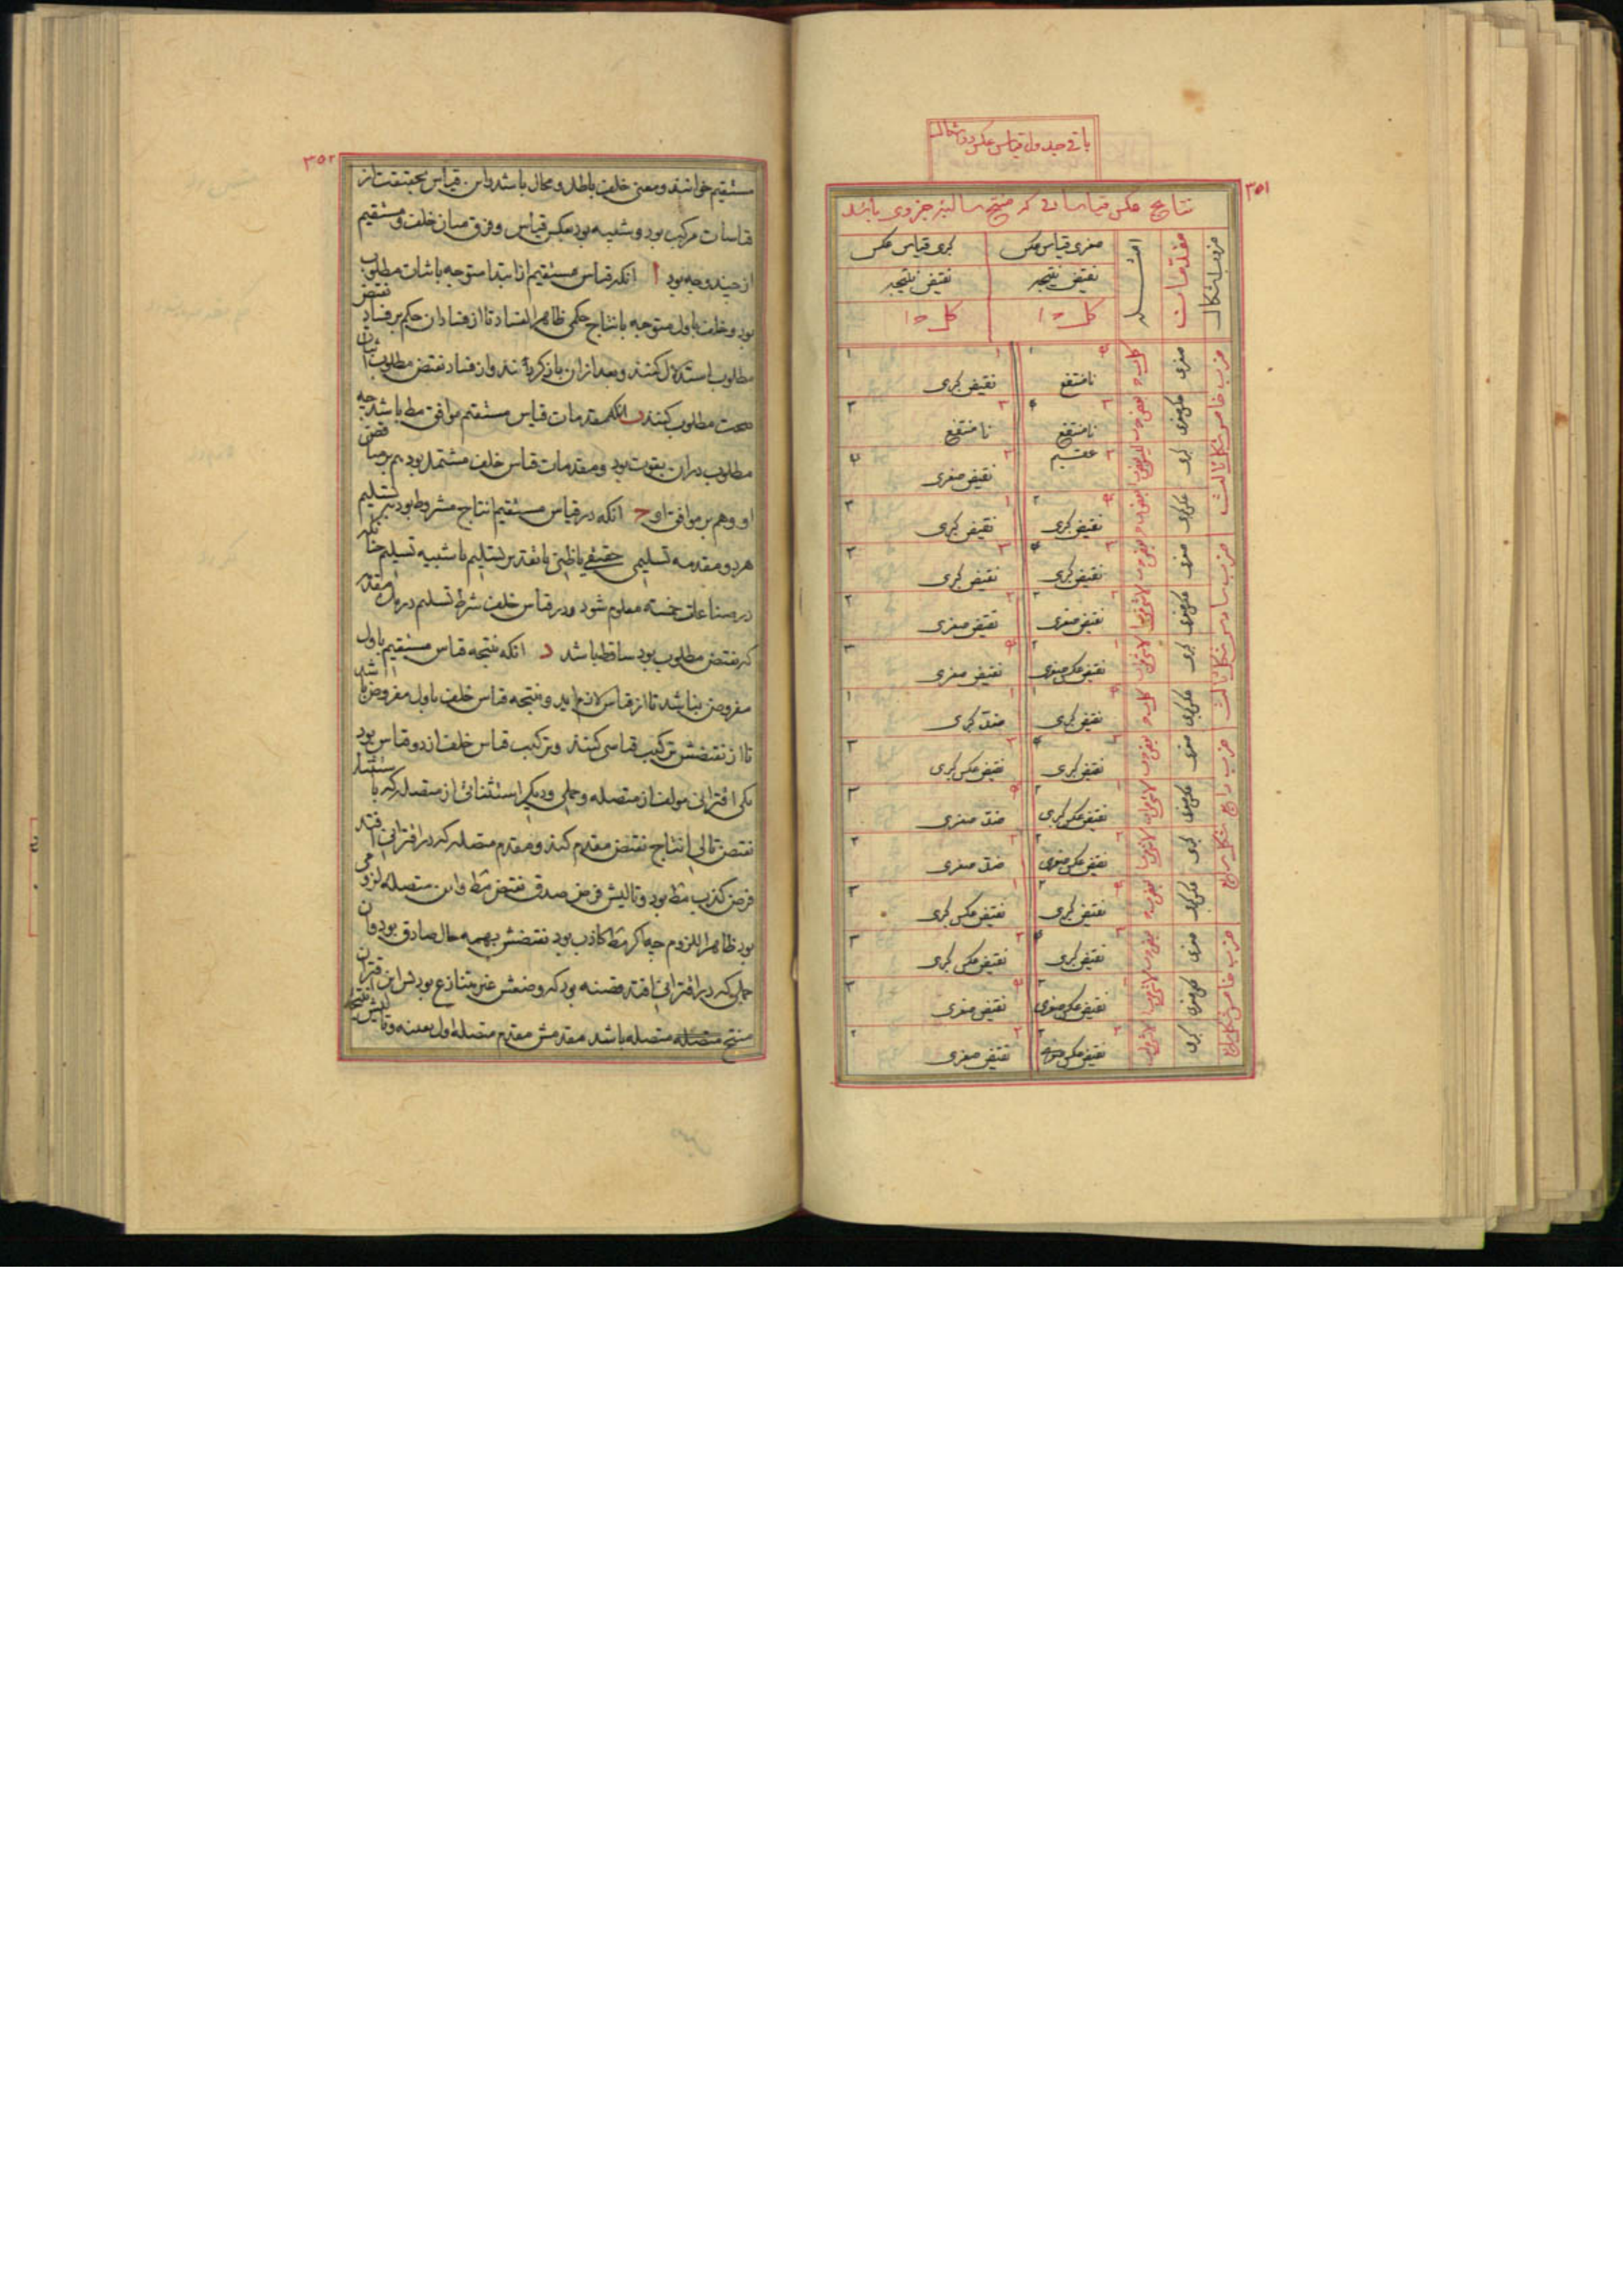 باقی جدول قیاس عکس در
۳۵۱
نتایج عکس قیاساتی که منتج سالبهٔ جزوی باشد
ضروب اشکال
مقدمات
امثله
صغری قیاس عکس
کبری قیاس عکس
نقیض نتیجه
نقیض نتیجه
کل
کل
ضرب خامس شکل ثالث
صغری
نامنتفع
نقیض کبری
عکس صغری
نامنتفع
نامنتفع
کبری
عقیم
نقیض صغری
عکس کبری
نقیض کبری
نقیض کبری
ضرب سادس شکل ثالث
صغری
نقیض کبری
نقیض کبری
عکس صغری
نقیض صغری
نقیض صغری
کبری
نقیض عکس صغری
نقیض صغری
عکس کبری
نقیض کبری
ضد کبری
ضرب رابع شکل رابع
صغری
نقیض کبری
نقیض عکس کبری
عکس صغری
نقیض عکس کبری
ضد صغری
کبری
نقیض عکس صغری
ضد صغری
عکس کبری
نقیض کبری
نقیض عکس کبری
ضرب خامس شکل رابع
صغری
نقیض کبری
نقیض عکس کبری
عکس صغری
نقیض عکس صغری
نقیض صغری
کبری
نقیض عکس صغری
نقیض صغری
۳۵۲
مستقیم خوانند و معنی خلف باطل و محال باشد و این قیاس بحقیقت از
قیاسات مرکب بود و شبیه بود بعکس قیاس و فرق میان خلف و مستقیم
از چند وجه بود ا انکه قیاس مستقیم از ابتدا متوجه باثبات مطلوب
بود و خلف باول متوجه بانتاج حکمی ظاهر الفساد تا از فساد ان حکم بر فساد نقیض
مطلوب استدلال کنند و بعد از ان باز کردند و از فساد نقیض مطلوب اثبات
صحت مطلوب کنند ب انکه مقدمات قیاس مستقیم موافق مط باشد چه
مطلوب در ان بقوت بود و مقدمات قیاس خلف مشتمل بود هم بر مناقض
او و هم بر موافق او ج انکه در قیاس مستقیم انتاج مشروط بود بر تسلیم
هر دو مقدمه تسلیمی حقیقی یا ظنی یا تقدیر تسلیم یا شبیه تسلیم چنانکه
در صناعات خمسه معلوم شود و در قیاس خلف شرط تسلیم در یک مقدمه
که نقیض مطلوب بود ساقط باشد د انکه نتیجه قیاس مستقیم باول
مفروض نباشد تا از قیاس لازم اید و نتیجه قیاس خلف باول مفروض باشد
تا از نقیضش ترکیب قیاسی کنند و ترکیب قیاس خلف از دو قیاس بود
یکی اقترانی مولف از متصله و حملی و دیگر استثنائی از متصله که باستثناء
نقیض تالی انتاج نقیض مقدم کند و مقدم متصله که در اقترانی افتد
فرض کذب مط بود و تالیش فرض صدق نقیض مط و این متصله لزومی
بود ظاهرا للزوم چه اکر مط کاذب بود نقیضش بهمه حال صادق بود و ان
حملی که در اقترانی افتد قضیه بود که وضعش غیر متنازع بود پس این اقتران
منتج متصله باشد مقدمش مقدم متصله اول بعینه و تالیش نتیجه